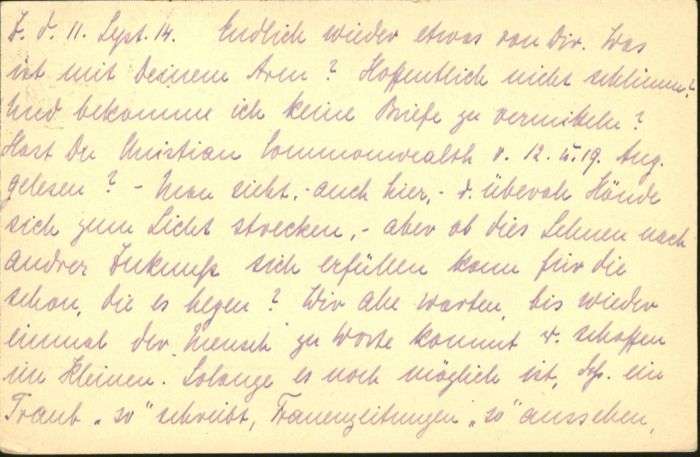 Z. d. 11. Sept. 14. Endlich wieder etwas von Dir. Was
ist mit Deinem Arm? Hoffentlich nicht schlimm?
Und bekomme ich keine Briefe zu vermitteln?
Hast Du Christian Commonwealth v. 12. u. 19. Aug.
gelesen? - Man sieht, - auch hier, - d. überall Hände
sich zum Licht strecken, - aber ob dies Sehnen nach
andrer Zukunft sich erfüllen kann für die
schon, die es hegen? Wir alle warten, bis wieder
einmal der „Mensch" zu Worte kommt u. schaffen
im Kleinen. Solange es noch möglich ist, ein
Traub „so" schreibt, Frauenzeitungen „so" aussehen,